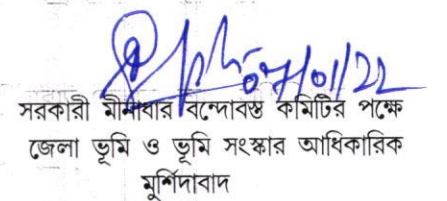 07/01/22
সরকারী মীমাংসার বন্দোবস্ত কমিটির পক্ষে
জেলা ভূমি ও ভূমি সংস্কার আধিকারিক
মুর্শিদাবাদ